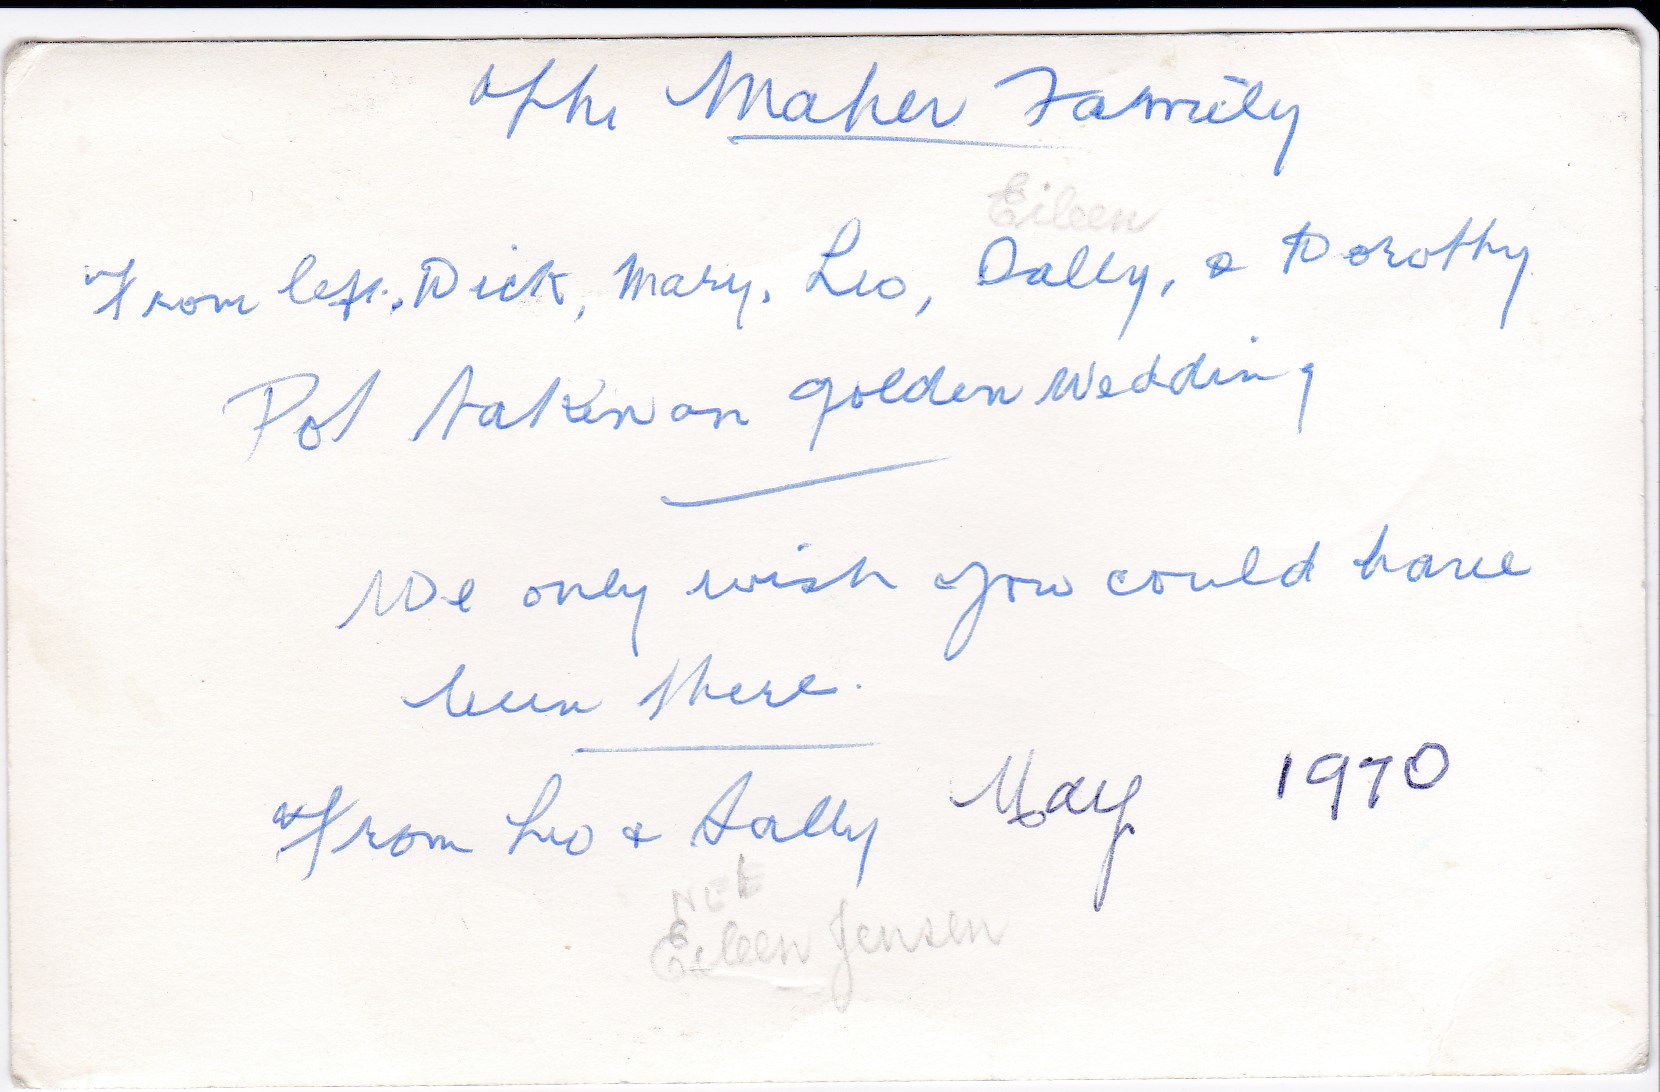 The Maher Family
Eileen
From left. Dick, Mary, Leo, Sally, & Dorothy
Pot taken on golden Wedding
We only wish you could have
been there.
From Leo & Sally May 1970
NEE
Eileen Jensen